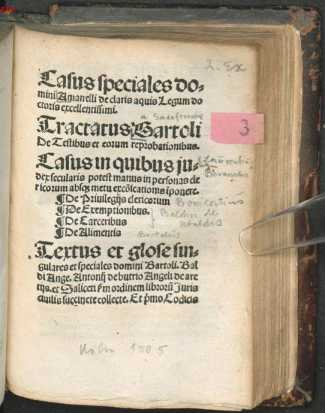 2. Ex
Casus speciales do-
mini Amanelli de claris aquis Legum do
ctoris excellentissimi.
Tractatus Bartoli
De Testibus et eorum reprobationibus.
3
Casus in quibus iu-
dex secularis potest manus in personas cle
ricorum absque metu excōicationis iponere.
¶ De Priuilegijs clericorum
¶ De Exemptionibus.
¶ De Carceribus
¶ De Alimentis
Bartolus
Textus et glose sin-
gulares et speciales domini Bartoli. Bal
di Ange. Antonij de butrio Angeli de are
tijs. et Saliceti p̄m ordinem librorū Juris
ciuilis succincte collecte. Et p̄mo Codicis
1505